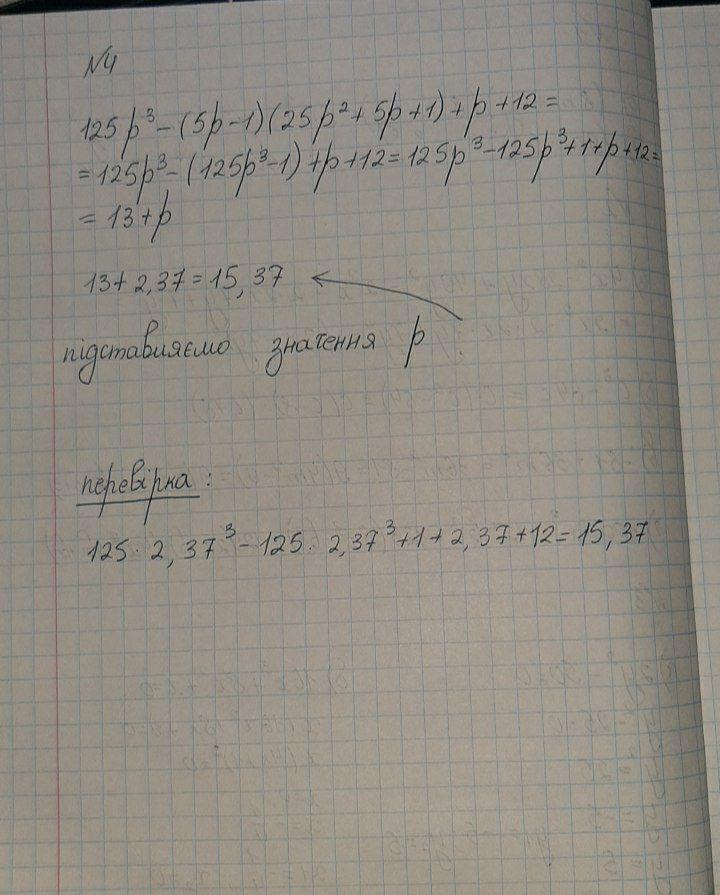 №4
125p³ - (5p - 1)(25p² + 5p + 1) + p + 12 =
= 125p³ - (125p³ - 1) + p + 12 = 125p³ - 125p³ + 1 + p + 12 =
= 13 + p
13 + 2,37 = 15,37
підставляємо значення p
перевірка:
125 · 2,37³ - 125 · 2,37³ + 1 + 2,37 + 12 = 15,37